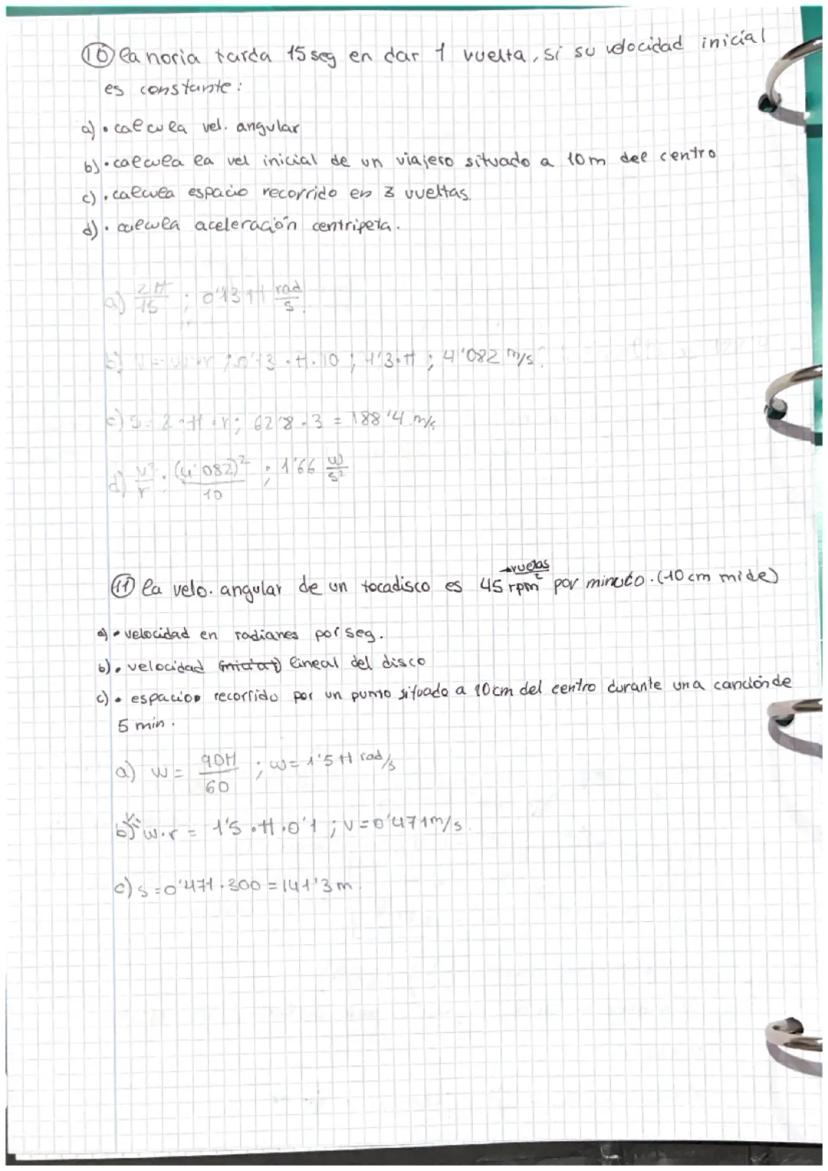 ⑩ La noria tarda 15 seg en dar 1 vuelta, si su velocidad inicial
es constante:
a) • calcula vel. angular
b) • calcula la vel inicial de un viajero situado a 10m del centro
c) • calcula espacio recorrido en 3 vueltas.
d) • calcula aceleración centripeta.
a) 2π/15 ; 0'13 π rad/s
b) V = w·r ; 0'13 · π · 10 ; 1'3 · π ; 4'082 m/s
c) s = 2 · π · r ; 62'8 · 3 = 188'4 m/s
d) v²/r ; (4'082)²/10 ; 1'66 m/s²
→ vueltas
⑪ La velo. angular de un tocadisco es 45 rpm² por minuto. (10 cm mide)
a) • velocidad en radianes por seg.
b) • velocidad (inicial) lineal del disco
c) • espacios recorrido por un punto situado a 10cm del centro durante una canción de
5 min.
a) w = 90π/60 ; w = 1'5 π rad/s
b) V = w·r = 1'5 · π · 0'1 ; v = 0'471 m/s
c) s = 0'471 · 300 = 141'3 m.